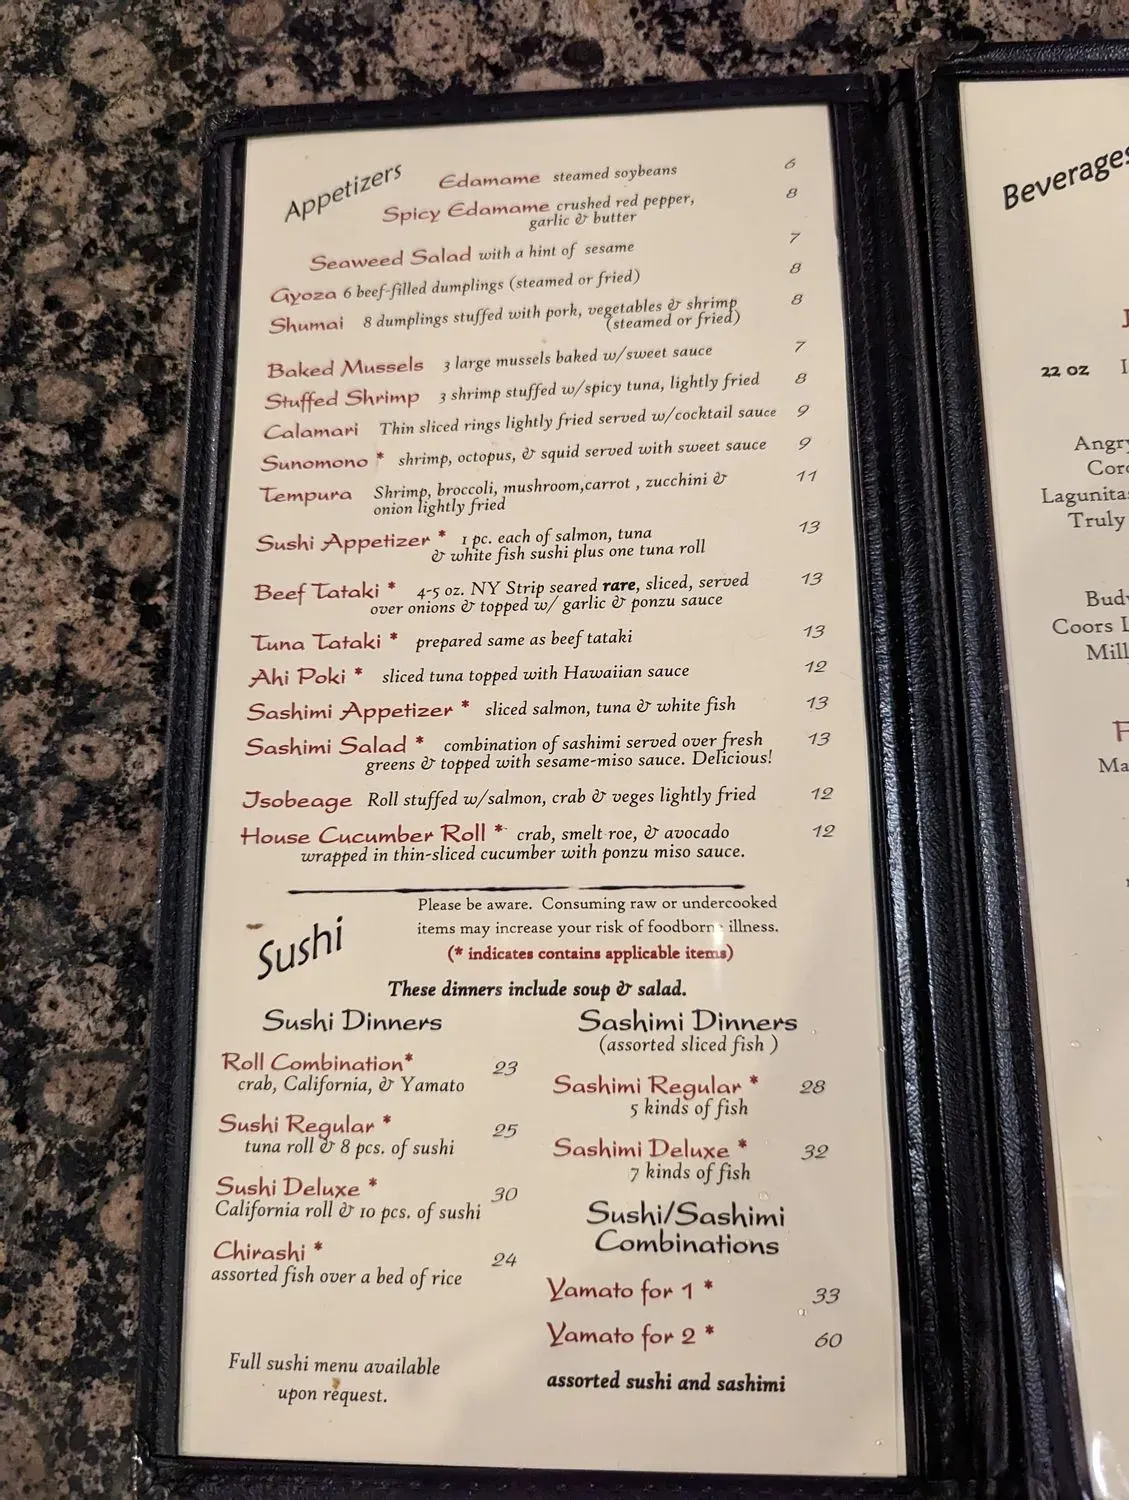 Appetizers
Edamame steamed soybeans 6
Spicy Edamame crushed red pepper, 8
garlic & butter
Seaweed Salad with a hint of sesame 7
Gyoza 6 beef-filled dumplings (steamed or fried) 8
Shumai 8 dumplings stuffed with pork, vegetables & shrimp 8
(steamed or fried)
Baked Mussels 3 large mussels baked w/sweet sauce 7
Stuffed Shrimp 3 shrimp stuffed w/spicy tuna, lightly fried 8
Calamari Thin sliced rings lightly fried served w/cocktail sauce 9
Sunomono * shrimp, octopus, & squid served with sweet sauce 9
Tempura Shrimp, broccoli, mushroom,carrot , zucchini & 11
onion lightly fried
Sushi Appetizer * 1 pc. each of salmon, tuna 13
& white fish sushi plus one tuna roll
Beef Tataki * 4-5 oz. NY Strip seared rare, sliced, served 13
over onions & topped w/ garlic & ponzu sauce
Tuna Tataki * prepared same as beef tataki 13
Ahi Poki * sliced tuna topped with Hawaiian sauce 12
Sashimi Appetizer * sliced salmon, tuna & white fish 13
Sashimi Salad * combination of sashimi served over fresh 13
greens & topped with sesame-miso sauce. Delicious!
Isobeage Roll stuffed w/salmon, crab & veges lightly fried 12
House Cucumber Roll * crab, smelt roe, & avocado 12
wrapped in thin-sliced cucumber with ponzu miso sauce.
Please be aware. Consuming raw or undercooked
items may increase your risk of foodborne illness.
(* indicates contains applicable items)
Sushi
These dinners include soup & salad.
Sushi Dinners
Roll Combination* 23
crab, California, & Yamato
Sushi Regular * 25
tuna roll & 8 pcs. of sushi
Sushi Deluxe * 30
California roll & 10 pcs. of sushi
Chirashi * 24
assorted fish over a bed of rice
Full sushi menu available
upon request.
Sashimi Dinners
(assorted sliced fish )
Sashimi Regular * 28
5 kinds of fish
Sashimi Deluxe * 32
7 kinds of fish
Sushi/Sashimi
Combinations
Yamato for 1 * 33
Yamato for 2 * 60
assorted sushi and sashimi
Beverages
22 oz
Angry
Lagunitas
Truly
Coors L